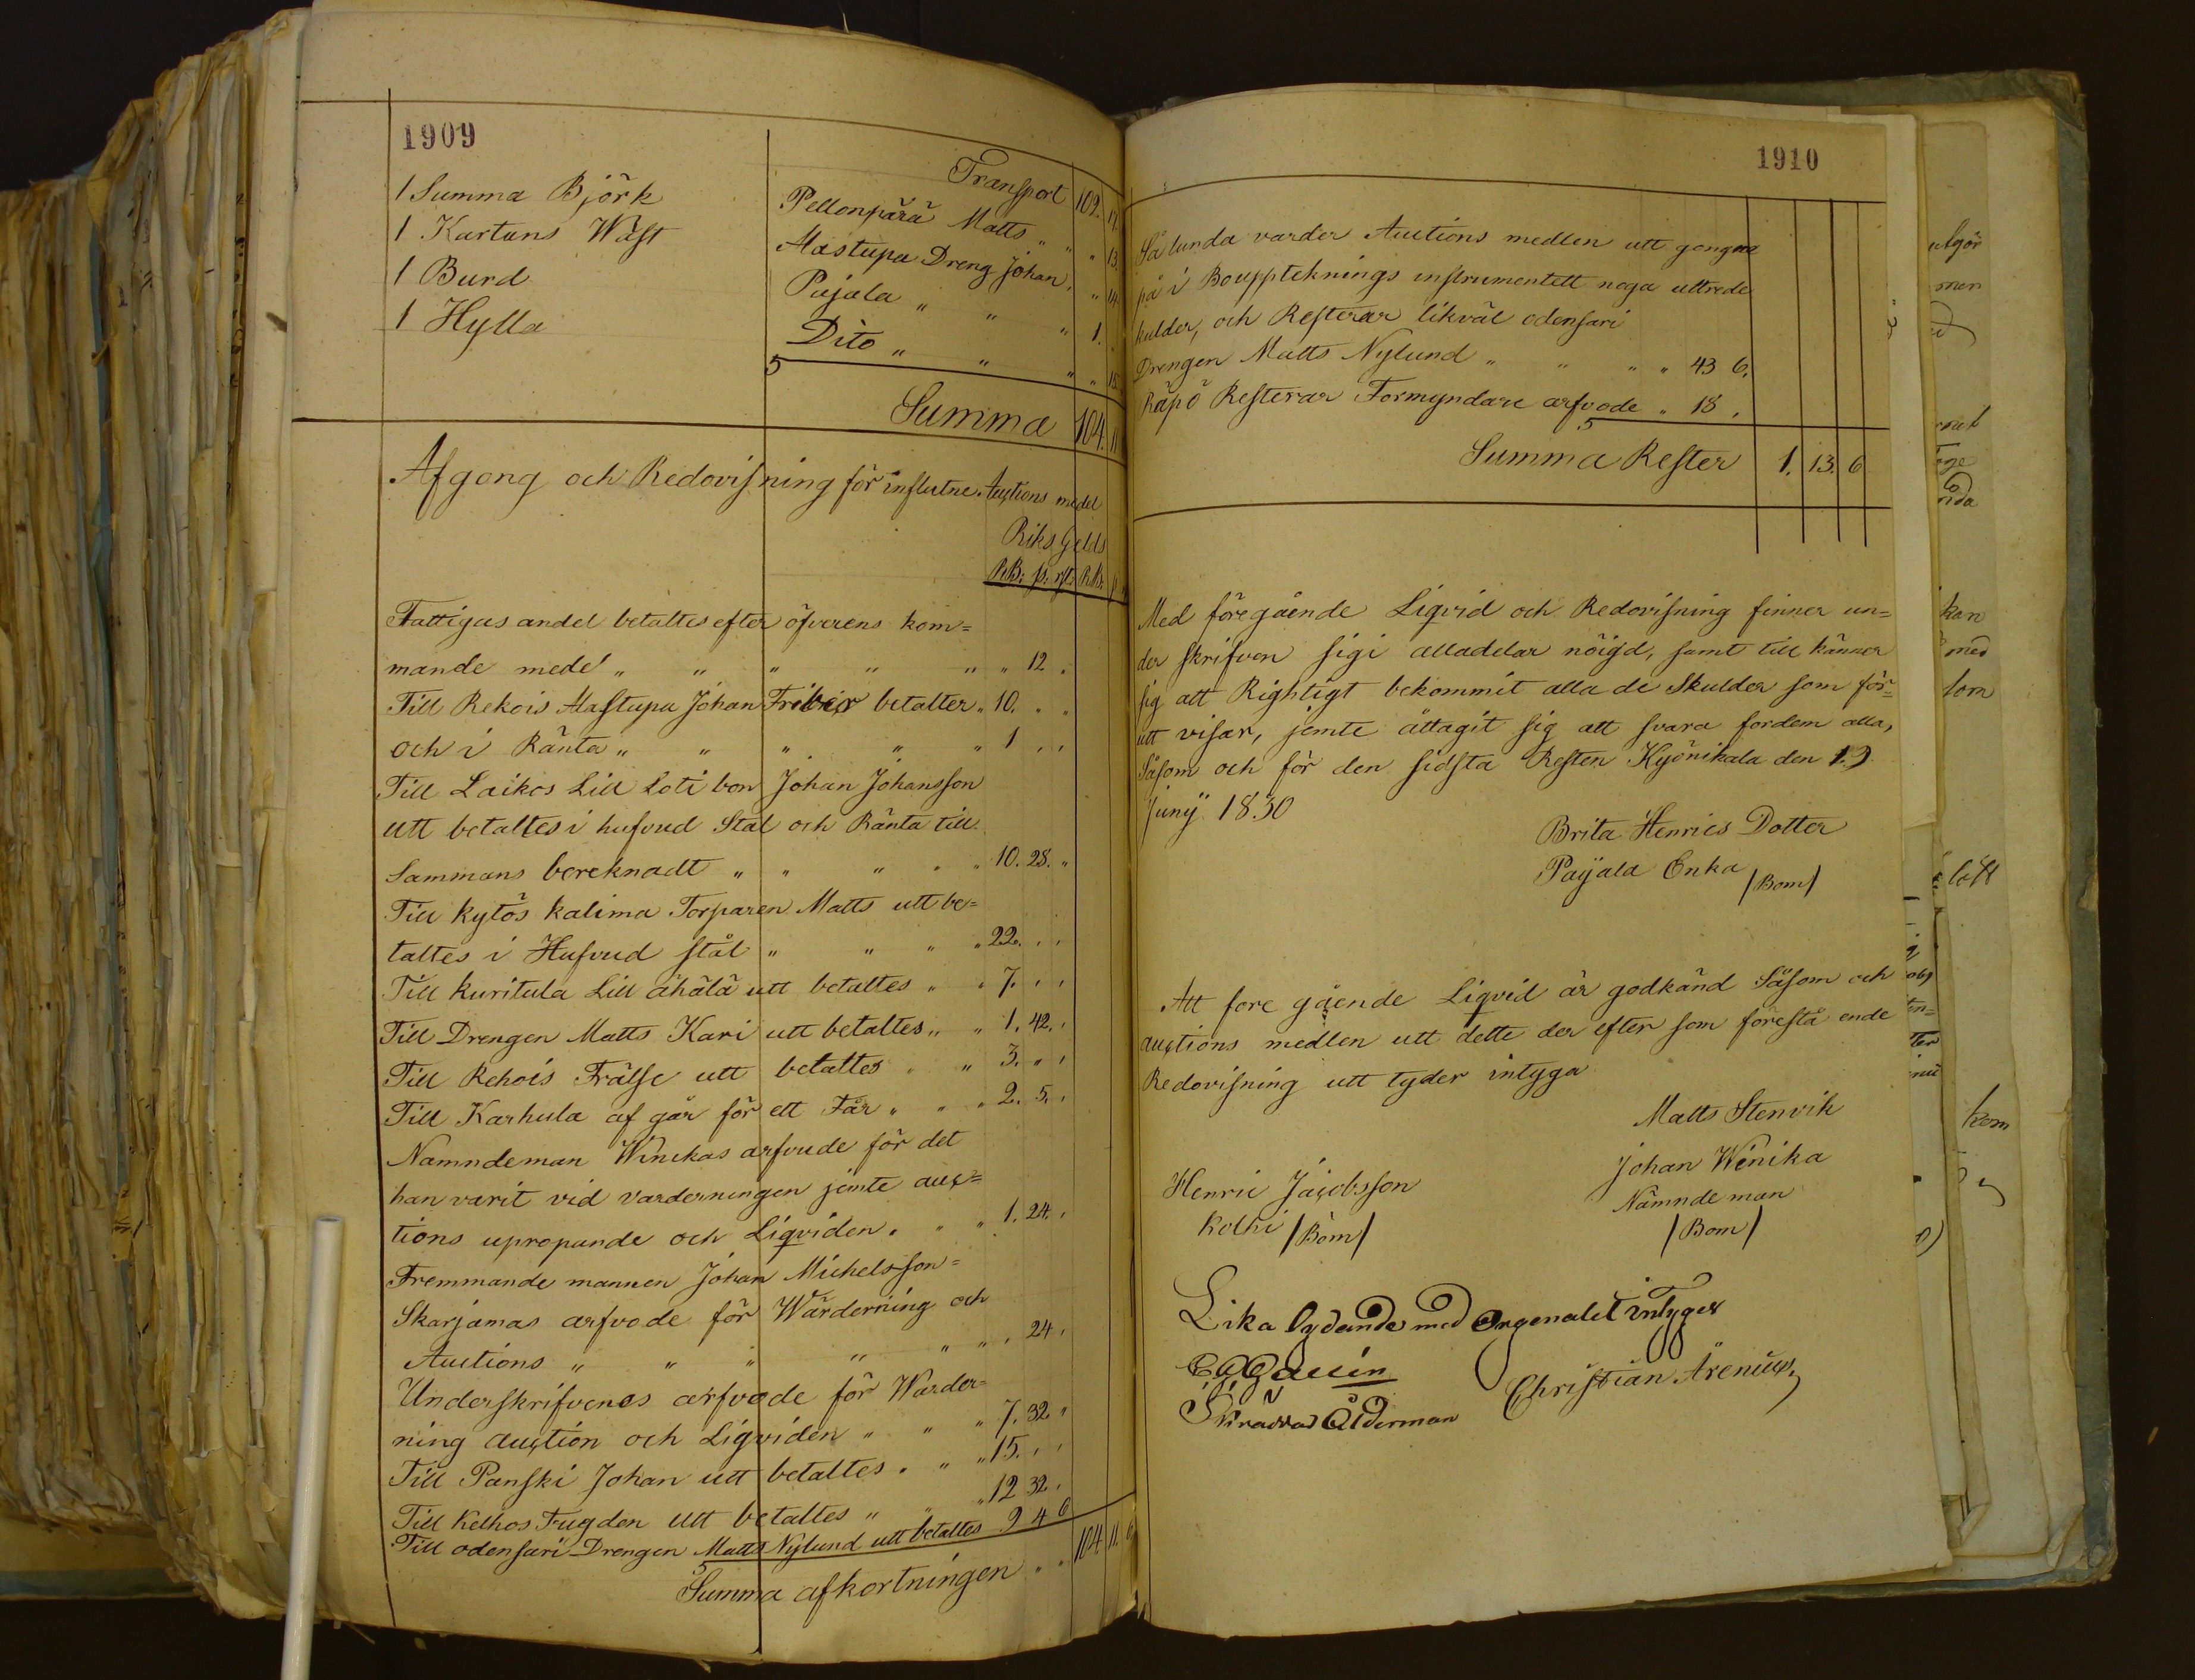 1909
Transport 102.
1 Summa Björk Pellonpärä Matts " " " 13.
1 Kartuns Wäst Aastupa Dreng Johan, " 14.
1 Burd Pajala " " " 1.
1 Hylla Dito " " " " 18
Summa 104. 11
Afgong och Redovisning för influtne Auctions medel
Riks Gelds
RB: ß. rst. RB:
Fattigas andel betaltes efter öfverens kom=
mande medel " " " " " " 12 "
Till Rekois Aastupa Johan Friberg betalter " 10. " "
och i Ränta " " " " " 1 " "
Till Laikos Lill Loti bon Johan Johansson
utt betaltes i hufvud Stål och Ränta till
Sammans bereknadt " " " " " 10. 28. "
Till kytös kalima Torparen Matts utt be=
taltes i Hufvud stål " " " " 22. " "
Till kuritula Lill ähälä utt betaltes " " 7. " "
Till Drengen Matts Kari utt betaltes " " 1. 42. "
Till Rehois Frälse utt betaltes " " 3. " "
Till Karhula af går för ett Får " " " 2. 5. "
Namndeman Winikas arfvude för det
han varit vid varderningen jemte auc=
tions upropande och Liqviden " " " 1. 24. "
Fremmande mannen Johan Michelsson=
Skarjamas arfvode för Wärderning och
Auctions " " " " " " 24 "
Underskrifvenes arfvode för Warder=
ning auction och Liqviden " " " 7. 32 "
Till Panski Johan utt betaltes " " " 15. " "
Till Kelhos Fugden utt betaltes " " " 12 32 "
Till odensari Drengen Matts Nylund utt betaltes 9 4 6
Summa afkortningen " " 104. 11. 6
1910
Så lunda varder Auctions medlen utt gongna
på i Bouppteknings instrumentett noga uttrede
kulder, och Resterar likväl odensari
Drengen Matts Nylund " " " " 43 6.
Räpö Resterar Formyndare arfvode " 18 "
Summa Rester 1. 13. 6
Med föregående Liqvid och Redovisning finner un=
der skrifven sig i alladelar nöigd, samt till känner
sig att Rightigt bekommit alla de Skulder som för=
utt visar, jemte åttagit sig att svara fordem alla,
Såsom och för den sidsta Resten Kyönikala den 19
Junÿ 1830
Brita Henrics Dotter
Payala Enka /Bom/
Att fore gående Liqvid är godkänd Såsom och
auctions medlen utt dette der efter som förestå ende
Redovisning utt tyder intyga
Matts Stenvik
Henric Jacobsson Johan Winika
kolhi /Bom/ Nämnde man
/Bom/
Lika lydande med Orgenalet intyges
Christian Arenius
Skräddar Ålderman